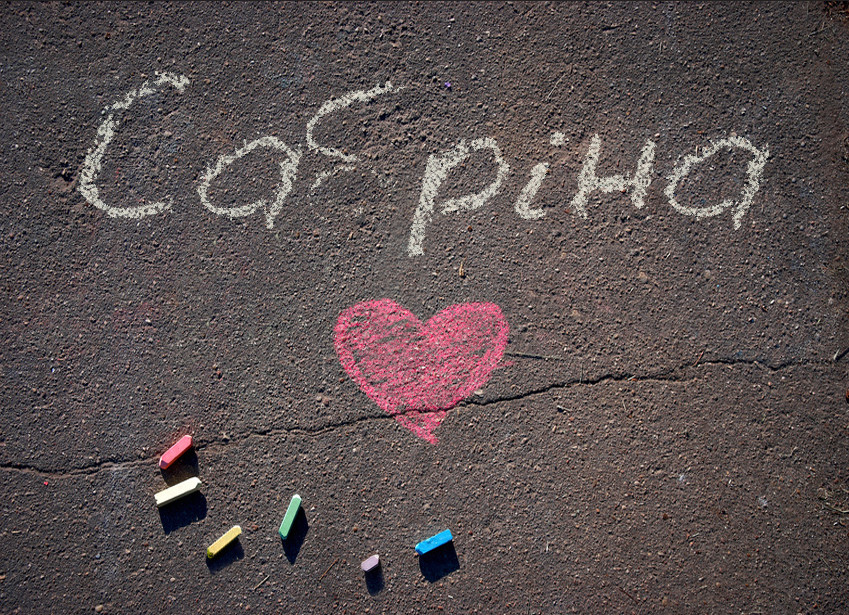 Сабріна